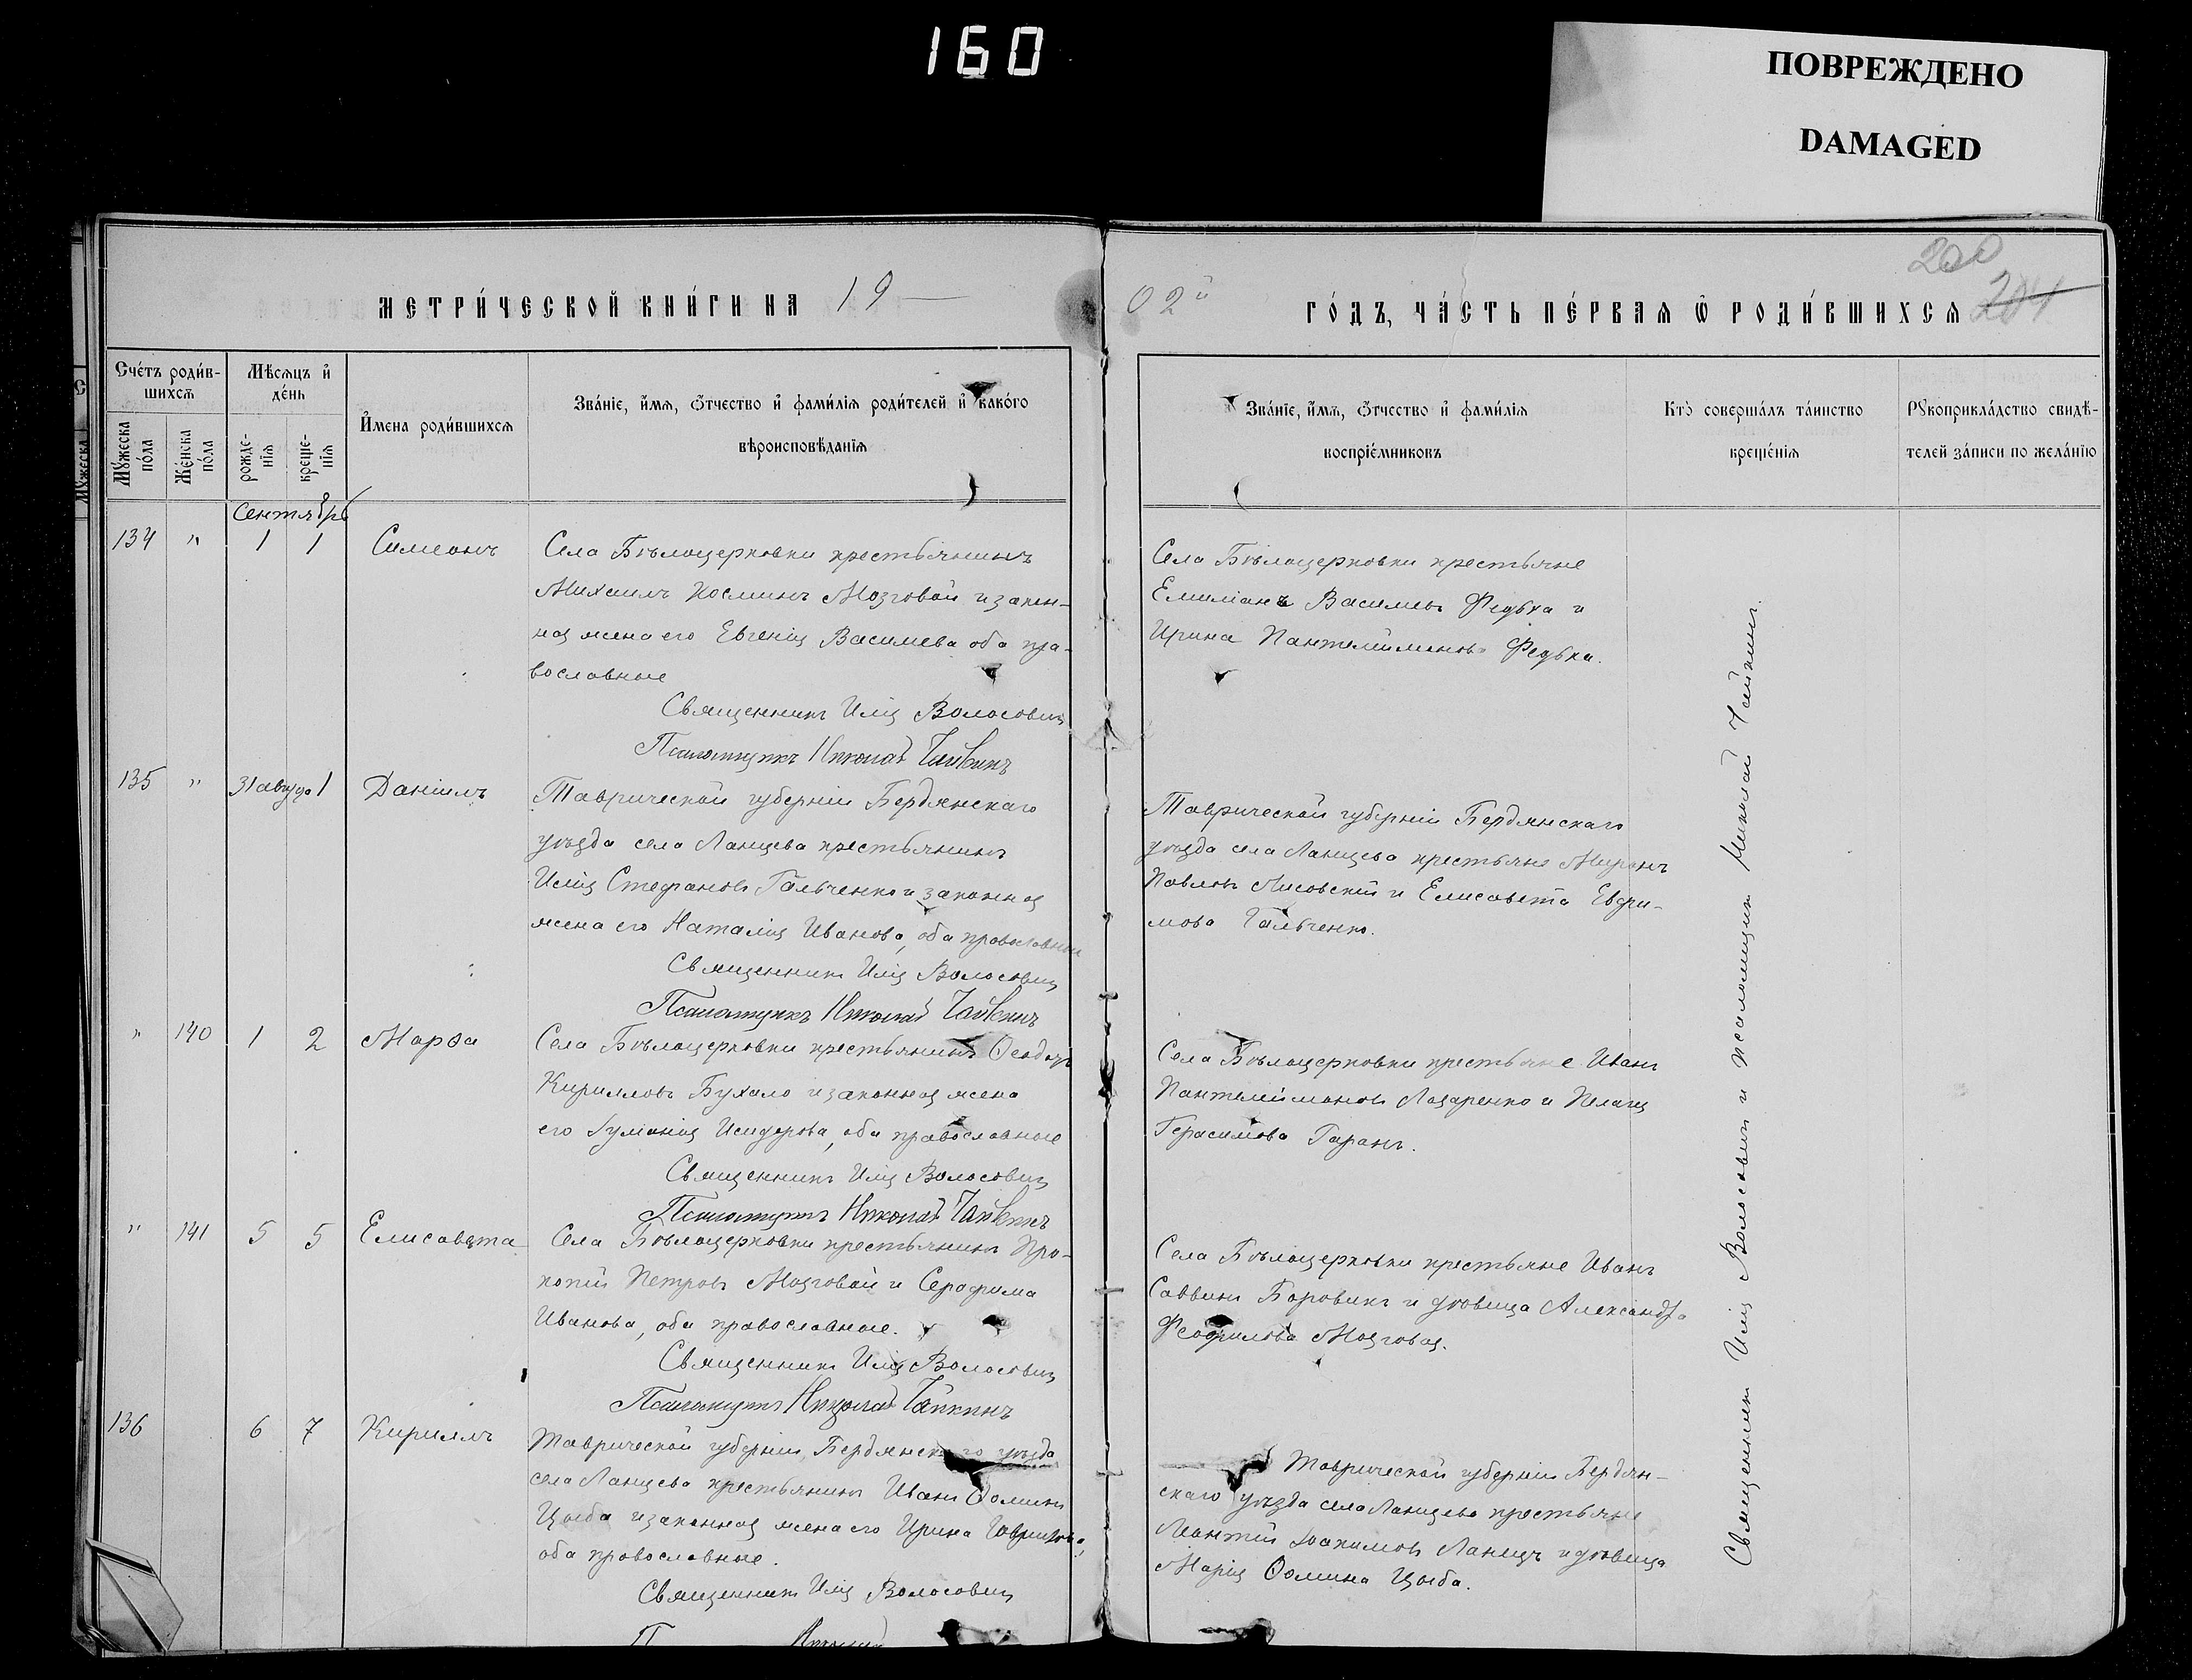 160
ПОВРЕЖДЕНО
DAMAGED
200
204
МЕТРИ́ЧЕСКОЙ КНИ́ГИ НА 19
02й ГО́ДЪ, ЧА́СТЬ ПЕ́РВАѦ Ѡ҆ РОДИ́ВШИХСѦ
Сче́тъ роди́в-
шихсѧ
Мѣсѧцъ и҆
де́нь
И҆мена роди́вшихсѧ
Зва́нїе, и҆́мѧ, ѻ҆́тчество и҆ фами́лїѧ роди́телей и҆ како́го
вѣроисповѣ́данїѧ
Мꙋ́жеска
по́ла
Же́нска
по́ла
рожде-
нїѧ
креще-
нїѧ
Зва́нїе, и҆́мѧ, ѻ҆́тчество и҆ фами́лїѧ
воспрїе́мниковъ
Кто̀ соверша́лъ та́инство
креще́нїѧ
Рꙋкоприкла́дство свидѣ́-
телей за́писи по жела́нїю
Сентябрь
134 " 1 1 Симеонъ
Села Бѣлоцерковки крестьянинъ
Михаилъ Косминъ Мозговой и закон-
ная жена его Евгенія Васильева оба пра-
вославные
Священникъ Илія Волосовичъ
Псаломщикъ Николай Чайкинъ
Села Бѣлоцерковки крестьяне
Емиліанъ Васильевъ Федька и
Ирина Пантелиймонова Федька.
135 " 31 августа 1 Даніилъ
Таврической губерніи Бердянскаго
уѣзда села Ланцева крестьянинъ
Илія Стефановъ Гальченко и законная
жена его Наталія Иванова, оба православные
Священникъ Илія Волосовичъ
Псаломщикъ Николай Чайкинъ
Таврической губерніи Бердянскаго
уѣзда села Ланцева крестьяне Миронъ
Павловъ Лисовскій и Елисавета Евфи-
мова Гальченко.
" 140 1 2 Марѳа
Села Бѣлоцерковки крестьянинъ Ѳеодоръ
Кирилловъ Бухало и законная жена
его Іуліанія Исидорова, оба православные
Священникъ Илія Волосовичъ
Псаломщикъ Николай Чайкинъ
Села Бѣлоцерковки крестьяне Иванъ
Пантелиймоновъ Лазаренко и Пелагія
Герасимова Таранъ.
" 141 5 5 Елисавета
Села Бѣлоцерковки крестьянинъ Про-
копій Петровъ Мозговой и Серафима
Иванова, оба православные.
Священникъ Илія Волосовичъ
Псаломщикъ Николай Чайкинъ
Села Бѣлоцерковки крестьяне Иванъ
Саввинъ Боровикъ и дѣвица Александра
Феофилова Мозговая.
136 6 7 Кириллъ
Таврической губерніи Бердянскаго уѣзда
села Ланцева крестьянинъ Иванъ Ѳоминъ
Цыба и законная жена его Ирина Гаврилова,
оба православные.
Священникъ Илія Волосовичъ
Таврической губерніи Бердян-
скаго уѣзда села Ланцева крестьяне
Леонтій Іоакимовъ Ланецъ и дѣвица
Марія Ѳомина Цыба.
Священникъ Илія Волосовичъ и псаломщикъ Николай Чайкинъ.